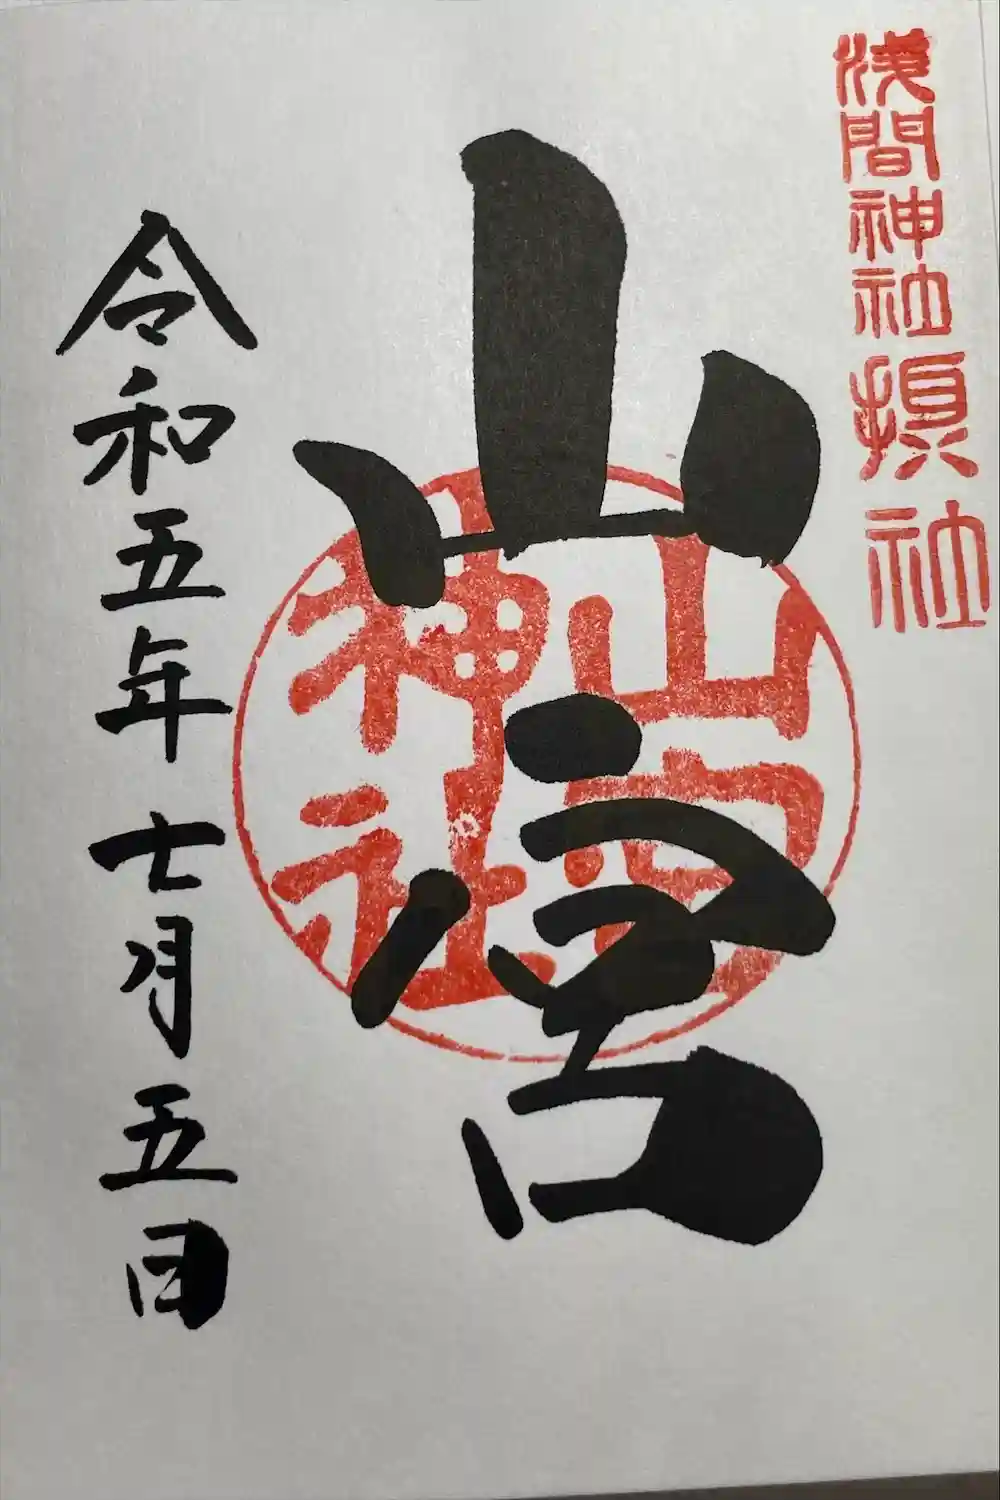 浅間神社摂社
山宮
山宮神社
令和五年七月五日